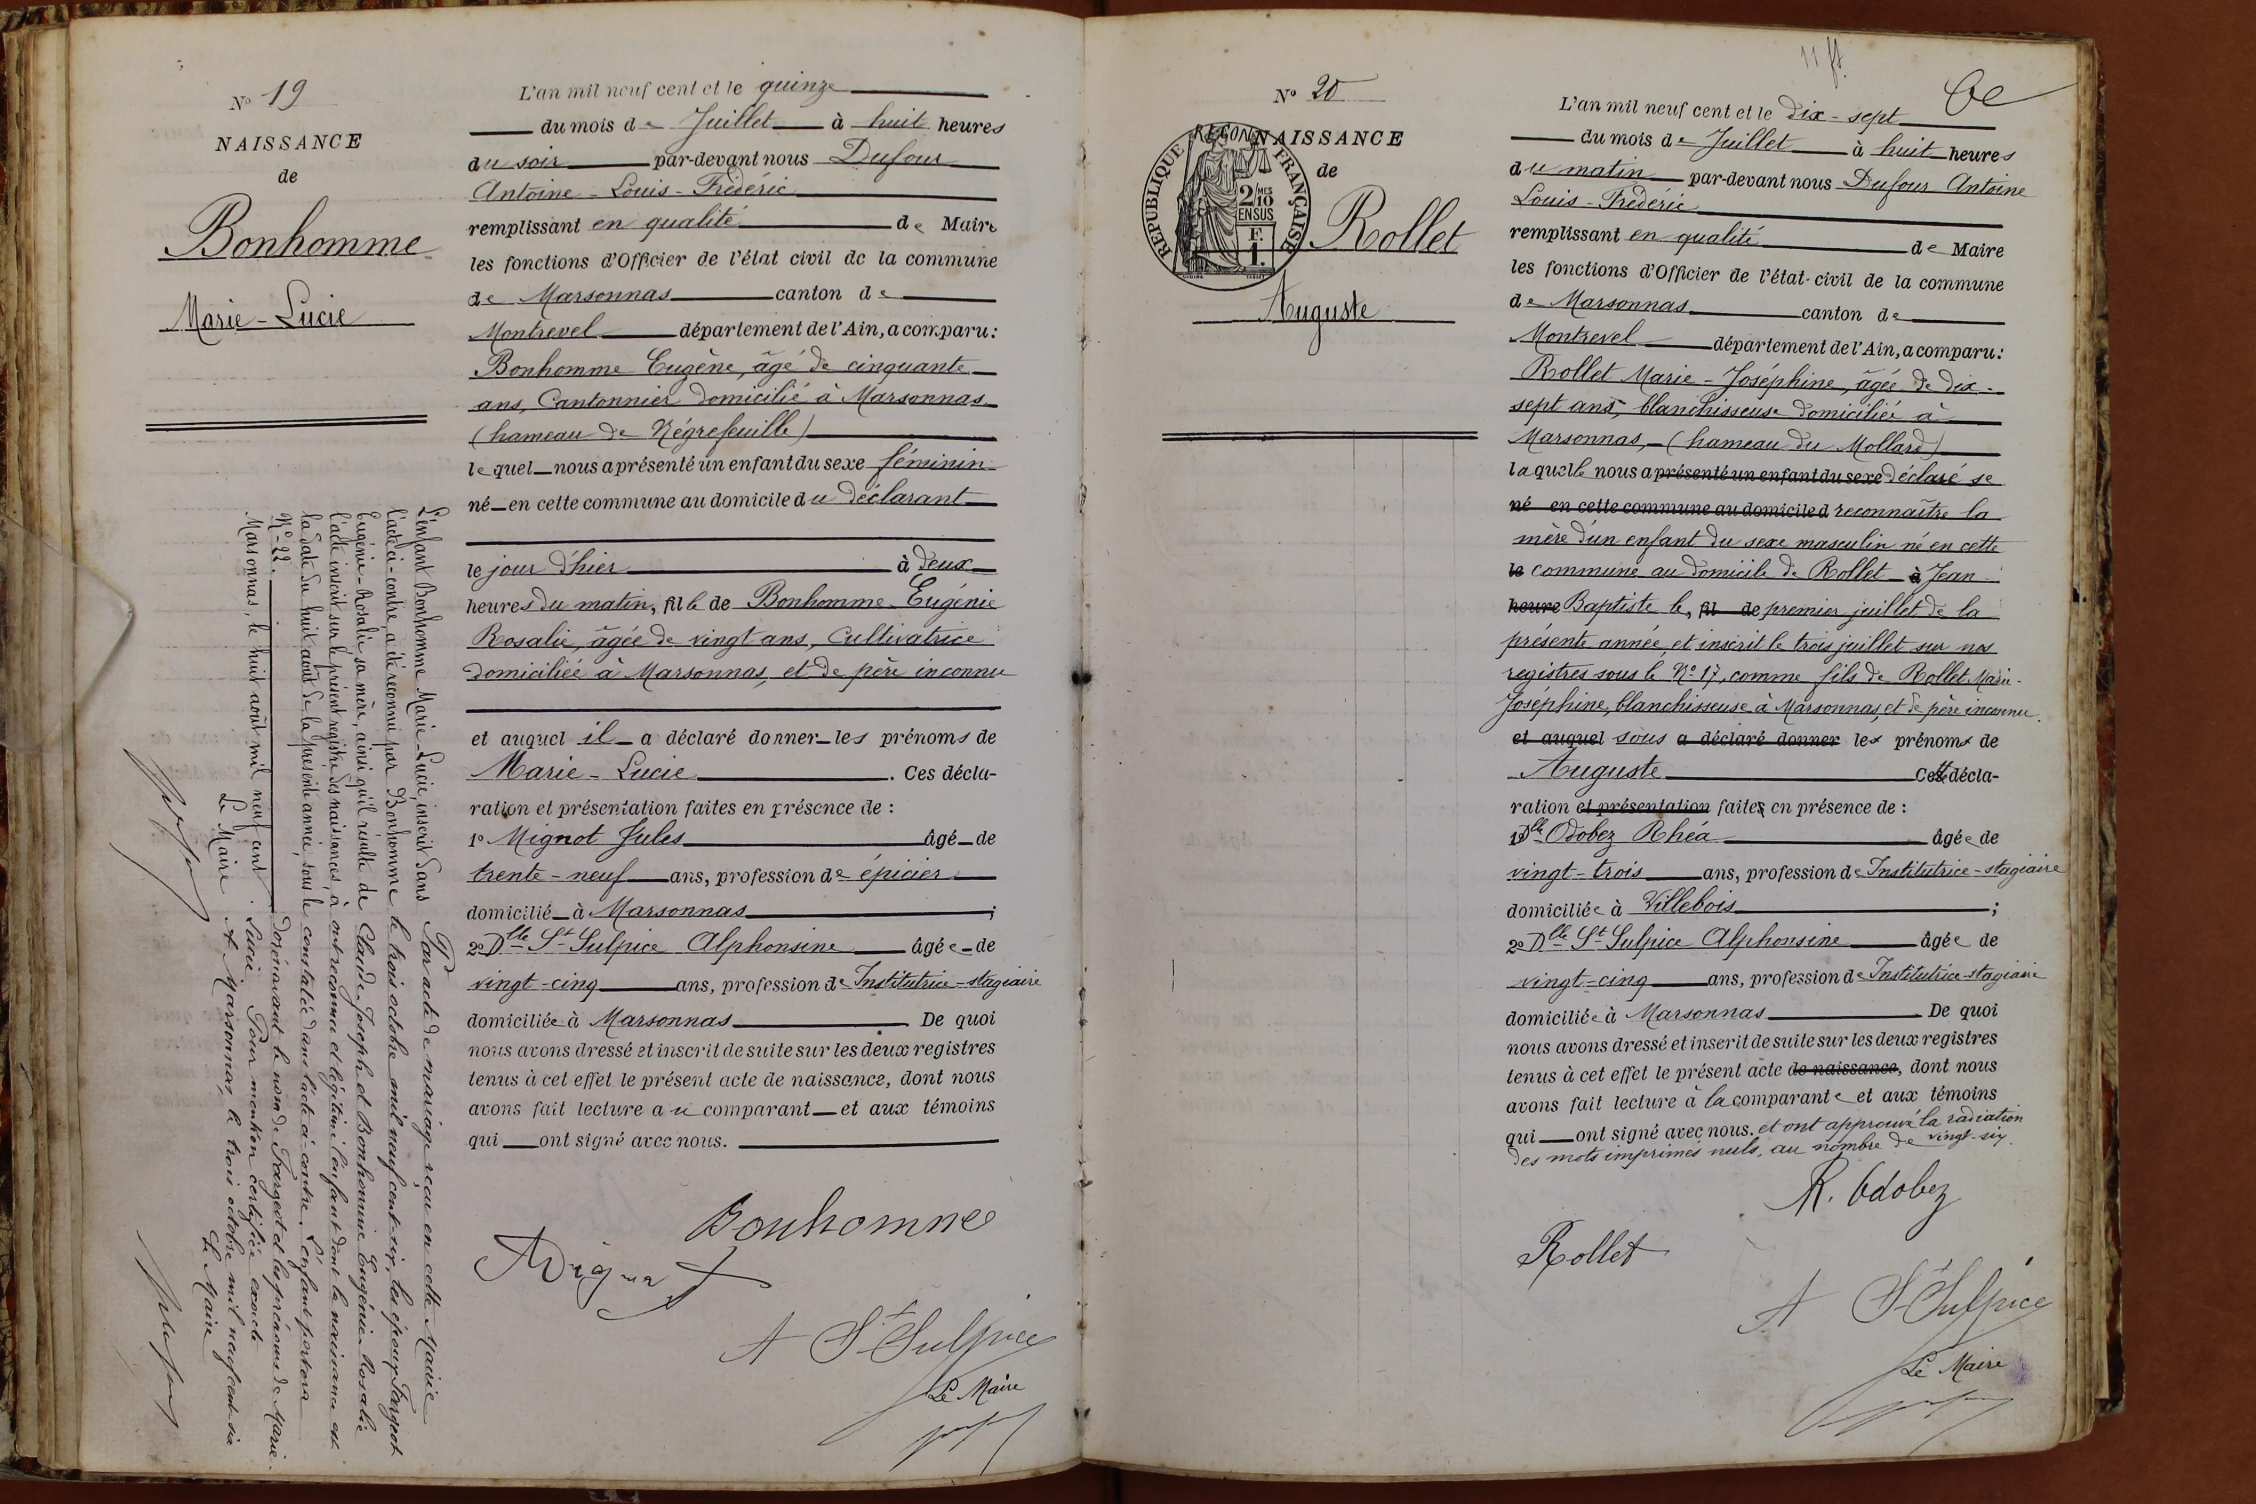 Nº 19
NAISSANCE
de
Bonhomme
Marie-Lucie
L'an mil neuf cent et le quinze
du mois de Juillet à huit heures
du soir par-devant nous Dufour
Antoine-Louis-Frédéric
remplissant en qualité de Maire
les fonctions d'Officier de l'état civil de la commune
de Marsonnas canton de
Montrevel département de l'Ain, a comparu:
Bonhomme Eugène, âgé de cinquante
ans, Cantonnier domicilié à Marsonnas
(hameau de Négrefeuille)
lequel nous a présenté un enfant du sexe féminin
né en cette commune au domicile du déclarant
le jour d'hier à deux
heures du matin, fille de Bonhomme Eugénie
Rosalie, âgée de vingt ans, Cultivatrice
domiciliée à Marsonnas, et de père inconnu
et auquel il a déclaré donner les prénoms de
Marie-Lucie. Ces décla-
ration et présentation faites en présence de :
1º Mignot Jules âgé de
trente-neuf ans, profession de épicier
domicilié à Marsonnas ;
2º Dlle St Sulpice Alphonsine âgée de
vingt-cinq ans, profession de Institutrice-stagiaire
domiciliée à Marsonnas De quoi
nous avons dressé et inscrit de suite sur les deux registres
tenus à cet effet le présent acte de naissance, dont nous
avons fait lecture au comparant et aux témoins
qui ont signé avec nous.
Bonhomme
Mignot
A St Sulpice
Le Maire
L'enfant Bonhomme Marie-Lucie, inscrit dans
l'acte ci-contre, a été reconnu par Bonhomme
Eugénie-Rosalie sa mère, ainsi qu'il résulte de
l'acte inscrit sur le présent registre des naissances, à
la date du huit août de la présente année, sous le
Nº 22.
Marsonnas, le huit août mil neuf cent.
Le Maire
Dufour
Par acte de mariage reçu en cette Mairie
le trois octobre mil neuf cent six, les époux Farget
Claude Joseph et Bonhomme Eugénie Rosalie
ont reconnu et légitimé l'enfant dont la naissance est
constatée dans l'acte ci-contre. L'enfant portera
dorénavant le nom de Farget et les prénoms de Marie
Lucie Pour mention certifiée exacte
A Marsonnas, le trois octobre mil neuf cent six
Le Maire
Dufour
11 ft
Nº 20
NAISSANCE
de
Rollet
Auguste
REPUBLIQUE FRANÇAISE
2 MES 10 EN SUS
F. 1.
L'an mil neuf cent et le dix-sept
du mois de Juillet à huit heures
du matin par-devant nous Dufour Antoine
Louis-Frédéric
remplissant en qualité de Maire
les fonctions d'Officier de l'état-civil de la commune
de Marsonnas canton de
Montrevel département de l'Ain, a comparu:
Rollet Marie-Joséphine, âgée de dix-
sept ans, blanchisseuse domiciliée à
Marsonnas, (hameau du Mollard)
laquelle nous a présenté un enfant du sexe déclaré se
né en cette commune au domicile d reconnaître la
mère d'un enfant du sexe masculin né en cette
le commune au domicile de Rollet à Jean
heure Baptiste le, fil de premier juillet de la
présente année et inscrit le trois juillet sur nos
registres sous le Nº 17, comme fils de Rollet Marie-
Joséphine, blanchisseuse à Marsonnas, et de père inconnu.
et auquel sous a déclaré donner les prénoms de
Auguste Cette décla-
ration et présentation faites en présence de :
1º Dlle Odobez Rhéa âgée de
vingt-trois ans, profession de Institutrice-stagiaire
domiciliée à Villebois ;
2º Dlle St Sulpice Alphonsine âgée de
vingt-cinq ans, profession de Institutrice-stagiaire
domiciliée à Marsonnas De quoi
nous avons dressé et inscrit de suite sur les deux registres
tenus à cet effet le présent acte de naissance, dont nous
avons fait lecture à la comparante et aux témoins
qui ont signé avec nous. et ont approuvé la radiation
des mots imprimés nuls, au nombre de vingt-six.
R. Odobez
Rollet
A St Sulpice
Le Maire